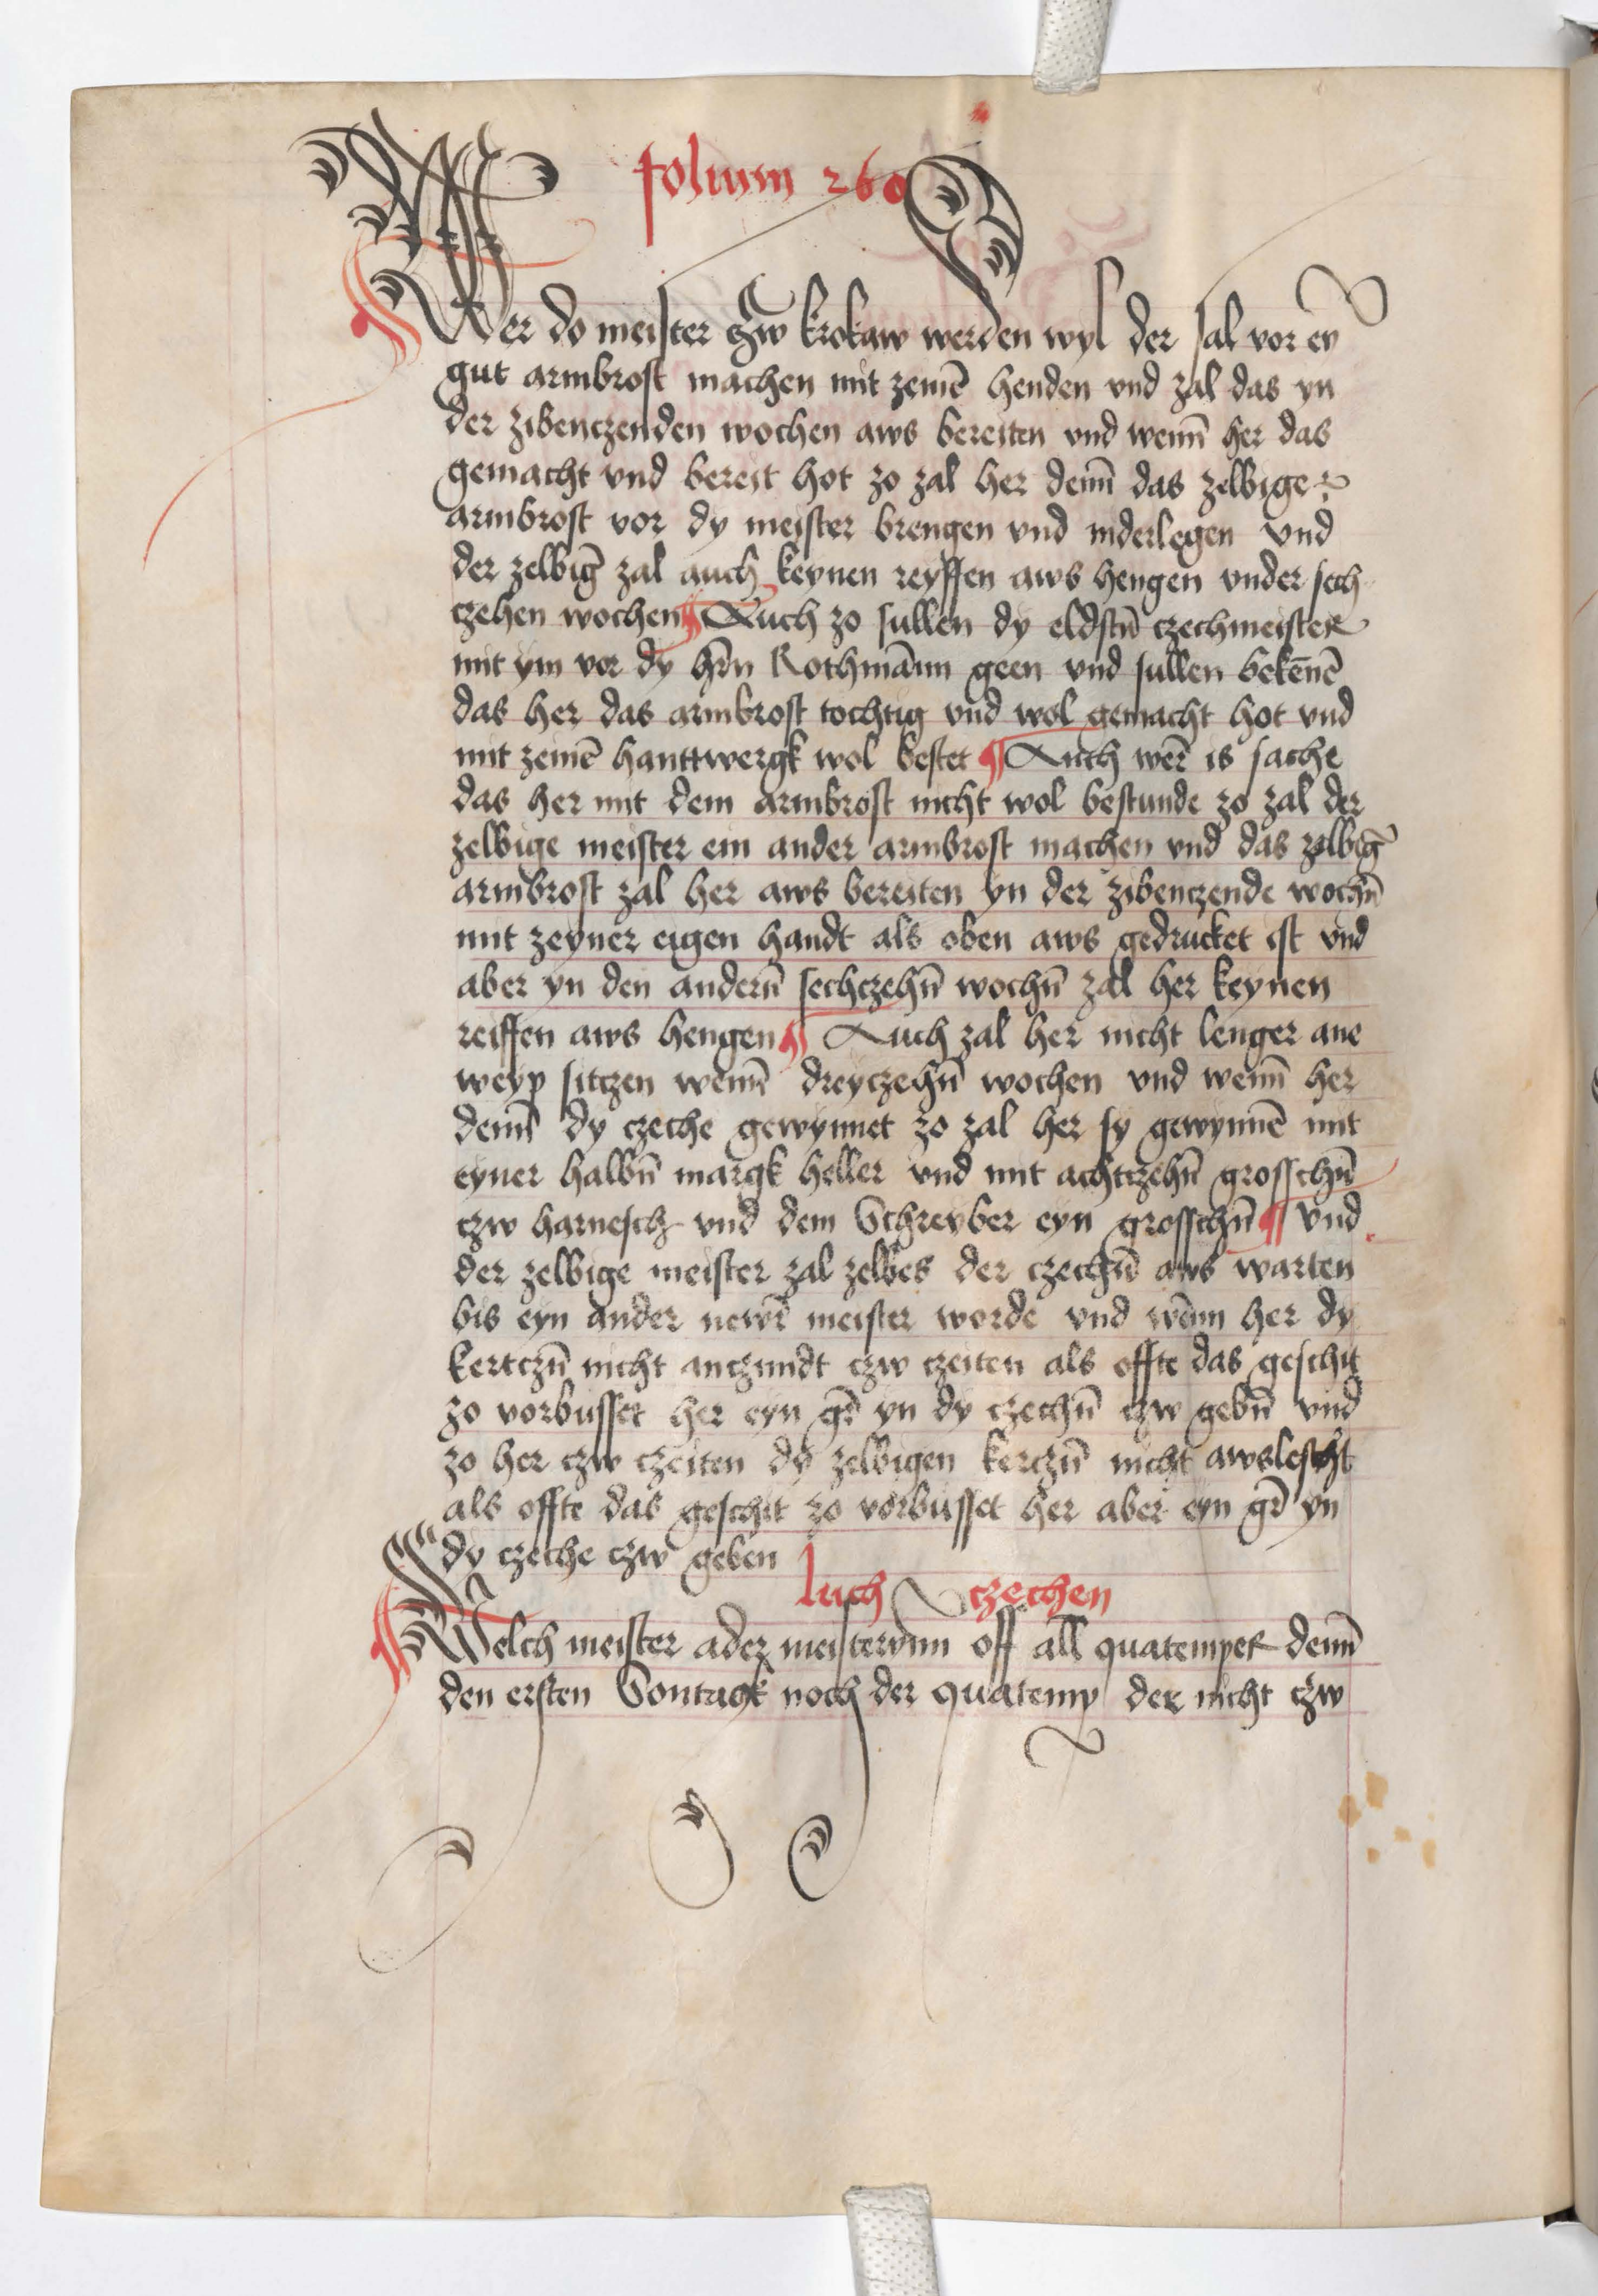 folium 260
Wer do meister czw krokaw werden wyl der sal vor ey
gut armbrost machen mit zeinē henden vnd zal das yn
der zibenczenden wochen aws bereiten vnd wenn̄ her das
gemacht vnd bereit hot zo zal her denn̄ das zelbige
armbrost vor dy meister brengen vnd niderlegen vnd
der zelbiḡ zal auch keynen reyffen aws hengen vnder sech
czehen wochen ¶ Auch zo sullen dy eldstn̄ czechmeister
mit ym vor dy hr̄n Rothmānn geen vnd sullen bekēnē
das her das armbrost tochtig vnd wol gemacht hot vnd
mit zeinē hanttwergk wol bestet ¶ Auch wer̄ is sache
das her mit dem armbrost nicht wol bestunde zo zal der
zelbige meister ein ander armbrost machen vnd das zelbiḡ
armbrost zal her aws bereiten yn der zibenczende wochn̄
mit zeyner eigen handt als oben aws gedrucket ist vnd
aber yn den andern̄ sechczehn̄ wochn̄ zal her keynen
reiffen aws hengen ¶ Auch zal her nicht lenger ane
weyp sitczen wenn̄ dreyczehn̄ wochen vnd wenn̄ her
denn̄ dy czeche gewynnet zo zal her sy gewynnē mit
eyner halbn̄ margk heller vnd mit achtczehn̄ grosschn̄
czw harnesch vnd dem Schreyber eyn grosschn̄ ¶ vnd
der zelbige meister zal zelbes der czechn̄ aws warten
bis eyn ander newr̄ meister worde vnd wēnn her dy
kertczn̄ nicht anczundt czw czeiten als offte das geschit
zo vorbusset her eyn gr̄ yn dy czechn̄ czw gebn̄ vnd
zo her czw czeiten dy zelbigen kerczn̄ nicht awslescht
als offte das geschit zo vorbusset her aber eyn gr̄ yn
dy czeche czw geben
such czechen
Welch meister ader meisterynn off all quatemper denn̄
den ersten Sontagk noch der quatemp der nicht czw